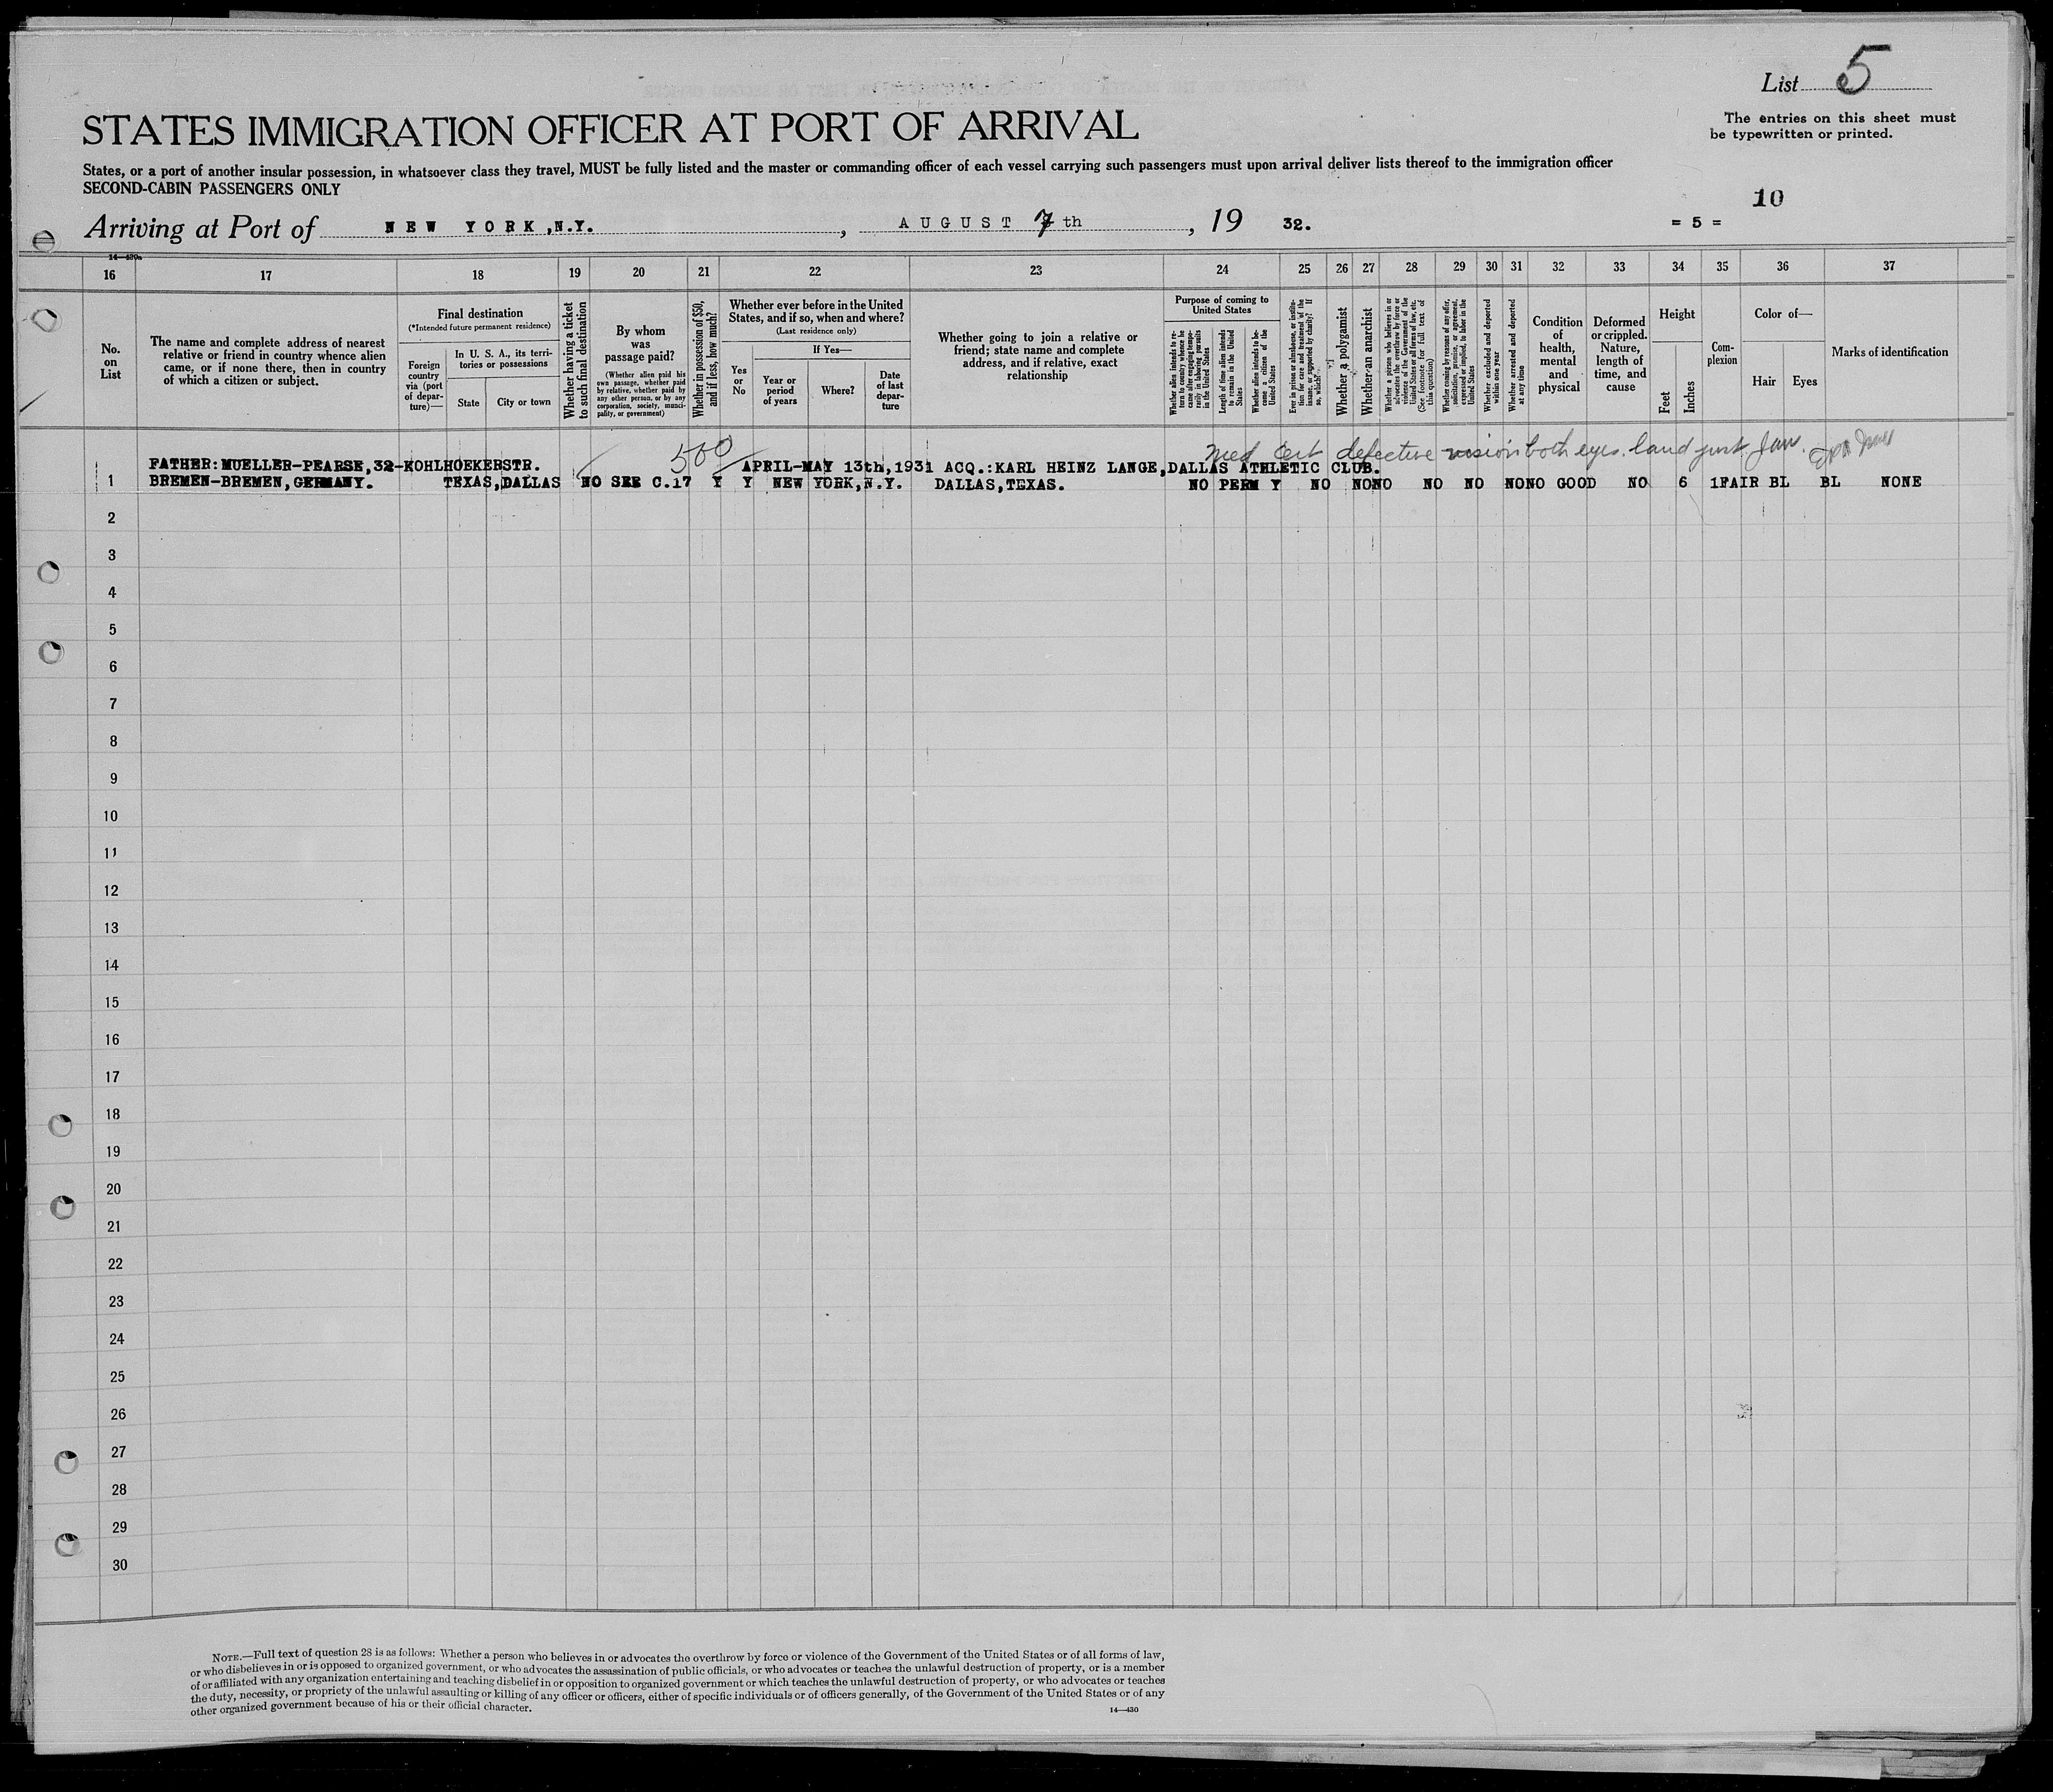 List 5
The entries on this sheet must
be typewritten or printed.
STATES IMMIGRATION OFFICER AT PORT OF ARRIVAL
States, or a port of another insular possession, in whatsoever class they travel, MUST be fully listed and the master or commanding officer of each vessel carrying such passengers must upon arrival deliver lists thereof to the immigration officer
SECOND-CABIN PASSENGERS ONLY
10
Arriving at Port of NEW YORK,N.Y. , AUGUST 7th , 19 32. = 5 =
14—430a
16 17 18 19 20 21 22 23 24 25 26 27 28 29 30 31 32 33 34 35 36 37
No.
on
List
The name and complete address of nearest
relative or friend in country whence alien
came, or if none there, then in country
of which a citizen or subject.
Final destination
(*Intended future permanent residence)
Foreign
country
via (port
of depar-
ture)—
In U. S. A., its terri-
tories or possessions
State
City or town
Whether having a ticket
to such final destination
By whom
was
passage paid?
(Whether alien paid his
own passage, whether paid
by relative, whether paid by
any other person, or by any
corporation, society, munici-
pality, or government)
Whether in possession of $50,
and if less, how much?
Whether ever before in the United
States, and if so, when and where?
(Last residence only)
Yes
or
No
If Yes—
Year or
period
of years
Where?
Date
of last
depar-
ture
Whether going to join a relative or
friend; state name and complete
address, and if relative, exact
relationship
Purpose of coming to
United States
Whether alien intends to re-
turn to country whence he
came after engaging tempo-
rarily in laboring pursuits
in the United States
Length of time alien intends
to remain in the United
States
Whether alien intends to be-
come a citizen of the
United States
Ever in prison or almshouse, or institu-
tion for care and treatment of the
insane, or supported by charity? If
so, which?
Whether a polygamist
Whether an anarchist
Whether a person who believes in or
advocates the overthrow by force or
violence of the Government of the
United States or all forms of law, etc.
(See footnote for full text of
this question)
Whether coming by reasons of any offer,
solicitation, promise, or agreement,
expressed or implied, to labor in the
United States
Whether excluded and deported
within one year
Whether arrested and deported
at any time
Condition
of
health,
mental
and
physical
Deformed
or crippled.
Nature,
length of
time, and
cause
Height
Feet
Inches
Com-
plexion
Color of—
Hair
Eyes
Marks of identification
500 med cert defective vision both eyes. land just
FATHER:MUELLER-PEARSE,32-KOHLHOEKERSTR. APRIL-MAY 13th,1931 ACQ.:KARL HEINZ LANGE,DALLAS ATHLETIC CLUB.
1 BREMEN-BREMEN,GERMANY. TEXAS,DALLAS NO SEE C.17 Y Y NEW YORK,N.Y. DALLAS,TEXAS. NO PERM Y NO NONO NO NO NONO GOOD NO 6 1FAIR BL BL NONE
2
3
4
5
6
7
8
9
10
11
12
13
14
15
16
17
18
19
20
21
22
23
24
25
26
27
28
29
30
NOTE.—Full text of question 28 is as follows: Whether a person who believes in or advocates the overthrow by force or violence of the Government of the United States or of all forms of law,
or who disbelieves in or is opposed to organized government, or who advocates the assassination of public officials, or who advocates or teaches the unlawful destruction of property, or is a member
of or affiliated with any organization entertaining and teaching disbelief in or opposition to organized government or which teaches the unlawful destruction of property, or who advocates or teaches
the duty, necessity, or propriety of the unlawful assaulting or killing of any officer or officers, either of specific individuals or of officers generally, of the Government of the United States or of any
other organized government because of his or their official character.
14—430